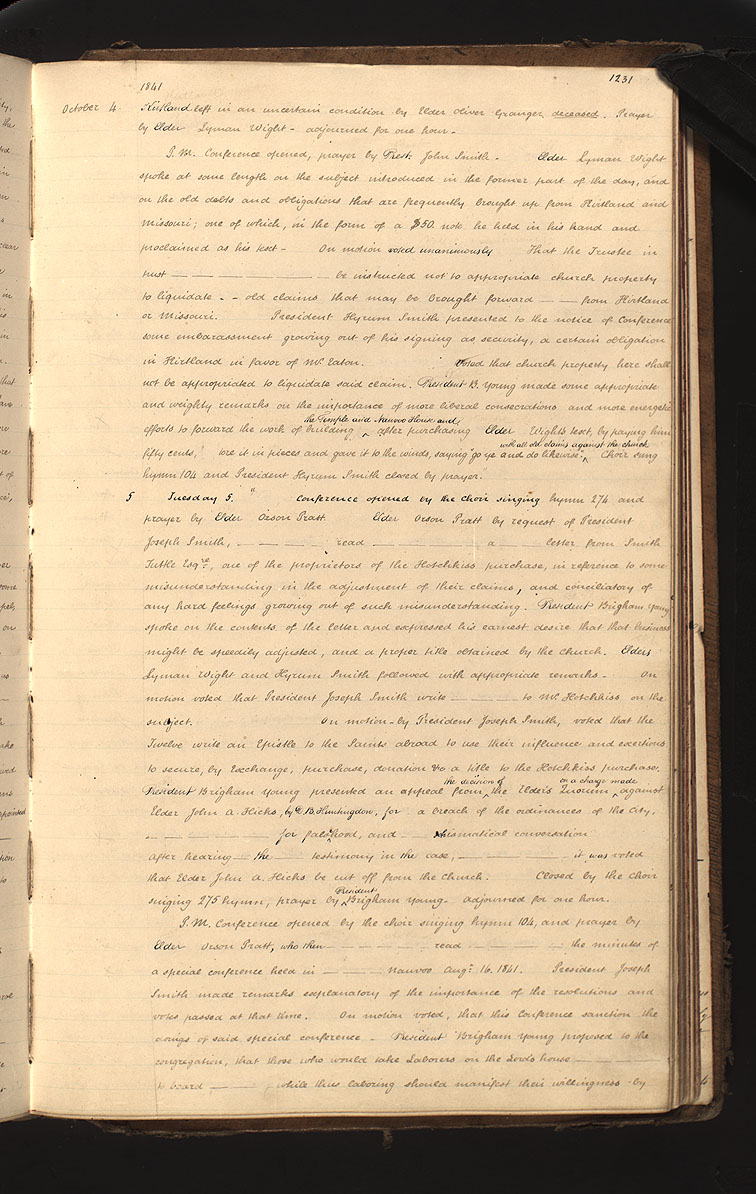 1231
1841
October 4 Kirtland left in an uncertain condition by Elder Oliver Granger deceased. Prayer
by Elder Lyman Wight – adjourned for one hour –
P.M. Conference opened, prayer by Prest. John Smith – Elder Lyman Wight
spoke at some length on the subject introduced in the former part of the day, and
on the old debts and obligations that are frequently brought up from Kirtland and
Missouri; one of which, in the form of a $50. note he held in his hand and
proclaimed as his text – On motion voted unanimously That the Trustee in
trust — — — — — — — be instructed not to appropriate church property
to liquidate – – old claims that may be brought forward — — from Kirtland
or Missouri. President Hyrum Smith presented to the notice of Conference
some embarassment growing out of his signing as security, a certain obligation
in Kirtland in favor of Mr. Eaton. Voted that church property here shall
not be appropriated to liquidate said claim. President B. Young made some appropriate
and weighty remarks on the importance of more liberal consecrations and more energetic
the Temple and Nauvoo House and
efforts to forward the work of building ^ after purchasing Elder Wight's text, by paying him
with all old claims against the church
fifty cents, tore it in pieces and gave it to the winds, saying "go ye and do likewise" ^ Choir sung
hymn 104 and President Hyrum Smith closed by prayer.
5 Tuesday 5. " Conference opened by the choir singing hymn 274 and
prayer by Elder Orson Pratt Elder Orson Pratt by request of President
Joseph Smith, — — — — read — — — — — a — — letter from Smith
Tuttle Esqre., one of the proprietors of the Hotchkiss purchase, in reference to some
misunderstanding in the adjustment of their claims, and conciliatory of
any hard feelings growing out of such misunderstanding. President Brigham Young
spoke on the contents of the letter and expressed his earnest desire that that business
might be speedily adjusted, and a proper title obtained by the church. Elders
Lyman Wight and Hyrum Smith followed with appropriate remarks – On
motion voted that President Joseph Smith write — — — to Mr Hotchkiss on the
subject. On motion – by President Joseph Smith, voted that the
Twelve write an Epistle to the Saints abroad to use their influence and exertions
to secure, by Exchange, purchase, donation &c. a title to the Hotchkiss purchase.
the decision of on a charge made
President Brigham Young presented an appeal from ^ the Elder's Quorum ^ against
Elder John A. Hicks, by D B. Huntingdon, for a breach of the ordinances of the City,
— — — — — — for falsehood, and — schismatical conversation
After hearing — the — testimony in the case, — — — — — it was voted
that Elder John A. Hicks be cut off from the Church. Closed by the choir
President
singing 275 hymn, prayer by ^ Brigham Young – adjourned for one hour.
P.M. Conference opened by the choir singing hymn 104, and prayer by
Elder Orson Pratt, who then — — — — read — — — — the minutes of
a special conference held in — — — Nauvoo Augt. 16. 1841. President Joseph
Smith made remarks explanatory of the importance of the resolutions and
votes passed at that time. On motion voted, that this Conference sanction the
doings of said special conference – President Brigham Young proposed to the
congregation, that those who would take Laborers on the Lord's house — — —
to board — — — while thus laboring should manifest their willingness by